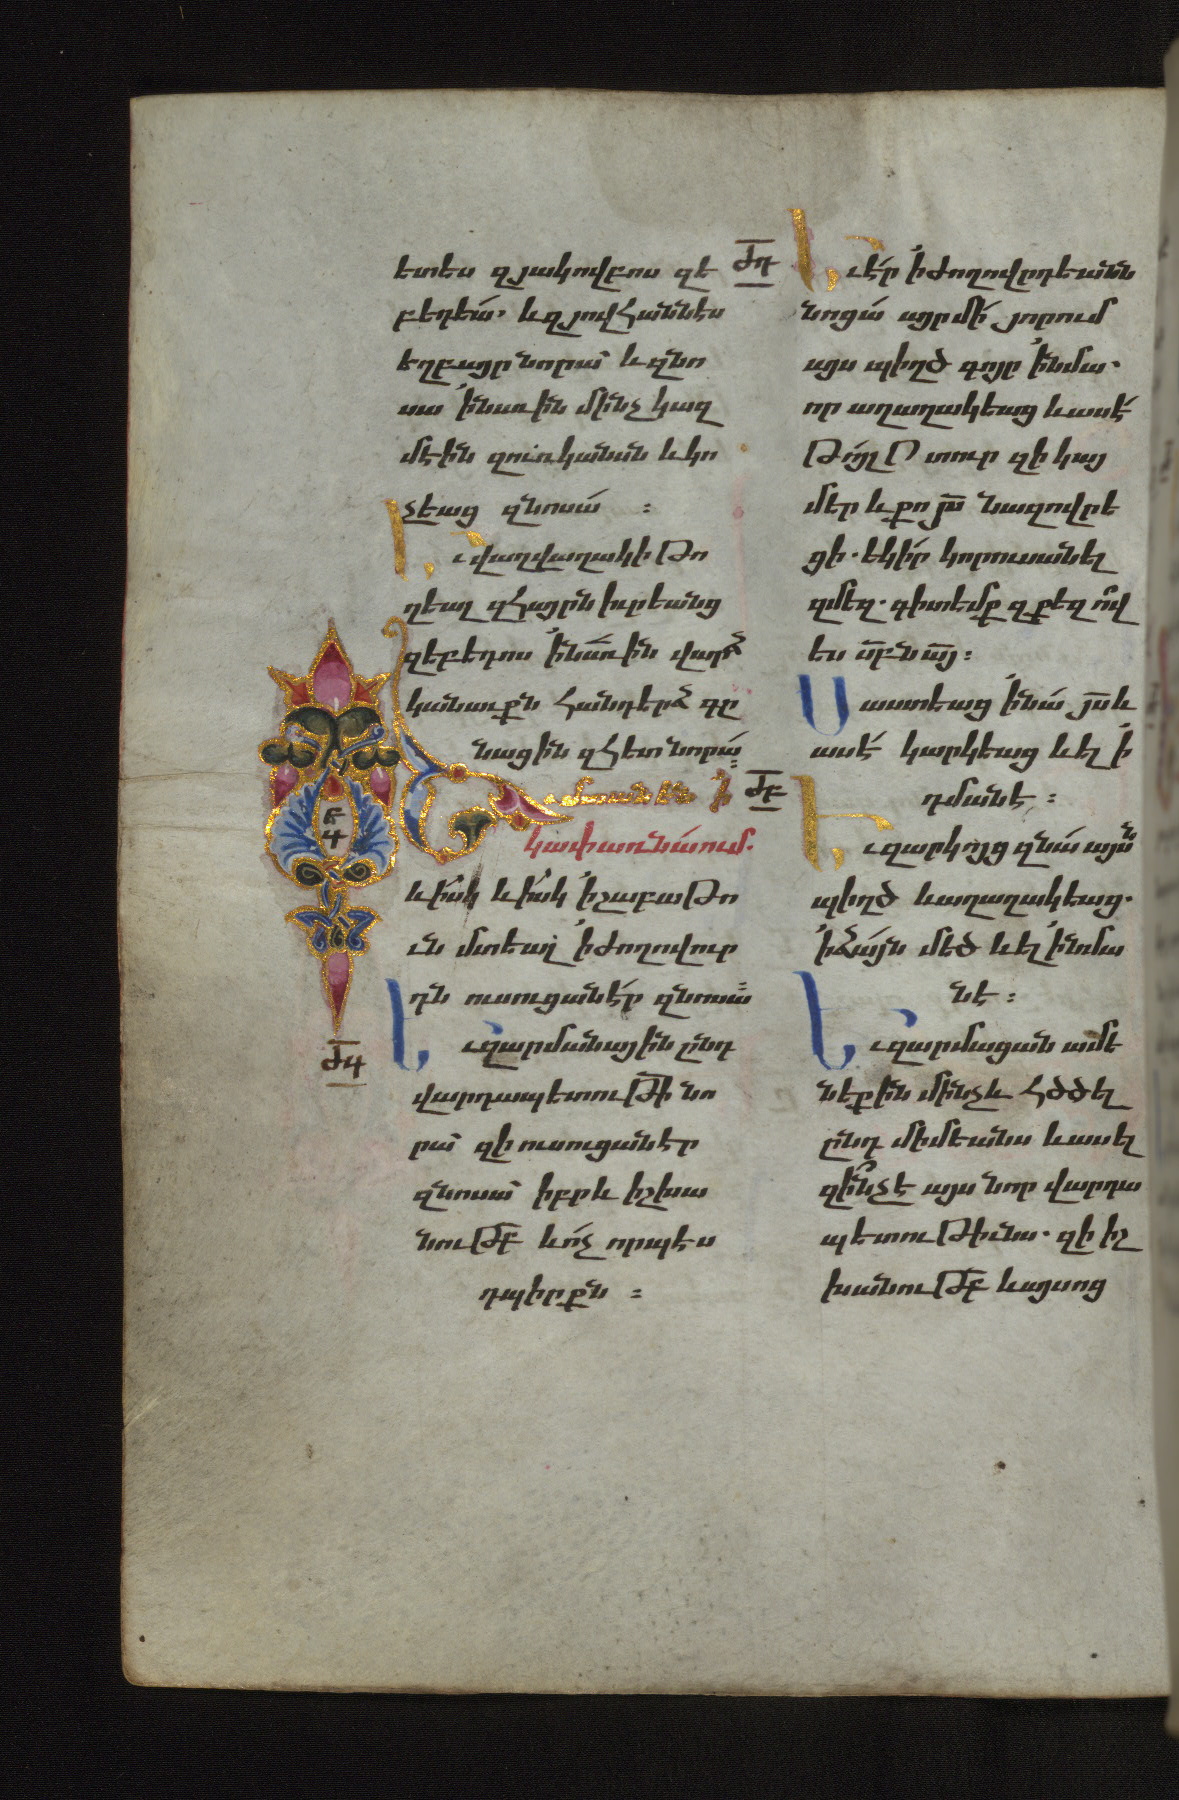 ետես զյակովբոս զե
բեդեա՛. և զյովհաննէս
եղբայր նորա՝ և զնո
սա ՚ի նաւին մինչ կազ
մէին զուռկանսն և կո
չեաց զնոսա՛ :
Եւ վաղվաղակի թո
ղեալ զհայրն իւրեանց
զեբեդոս ՚ի նաւին վարձ
կանաւքն հանդերձ գը
նացին զհետ նորա :
Եւ մտանեն ՚ի
կափառնաում.
և ի՛սկ և ի՛սկ ՚ի շաբաթո
ւն մտեալ ՚ի ժողովուր
դն ուսուցանէր զնոսա :
Եւ զարմանային ընդ
վարդապետութի նո
րա՝ զի ուսուցանէր
զնոսա՝ իբրև իշխա
նութբ և ո՛չ որպէս
դպիրքն :
ԺԳ
ԺԴ
Եւ է՛ր ՚ի ժողովրդեանն
նոցա՛ այր մի՛ յորում
այս պիղծ գոյր ՚ի նմա.
որ աղաղակեաց և ասէ՛
թո՛յլ տուր զի կայ
մեր և քո յս նազովրե
ցի. եկի՛ր կորուսանել
զմեզ. գիտեմք զքեզ ո՞վ
ես սբն այ :
Սաստեաց ՚ի նա՛ յս և
ասէ՛ կարկեաց և ել ՚ի
դմանէ :
ԺԵ
Եւ զարկոյց զնա՛ այսն
պիղծ և աղաղակեաց.
՚ի ձա՛յն մեծ և ել ՚ի նմա
նէ :
Եւ զարմացան ամե
նեքին մինչև հծծել
ընդ միմեանս և ասել
զի՞նչ է այս նոր վարդա
պետութիւնս. զի իշ
խանութբ և այսոց